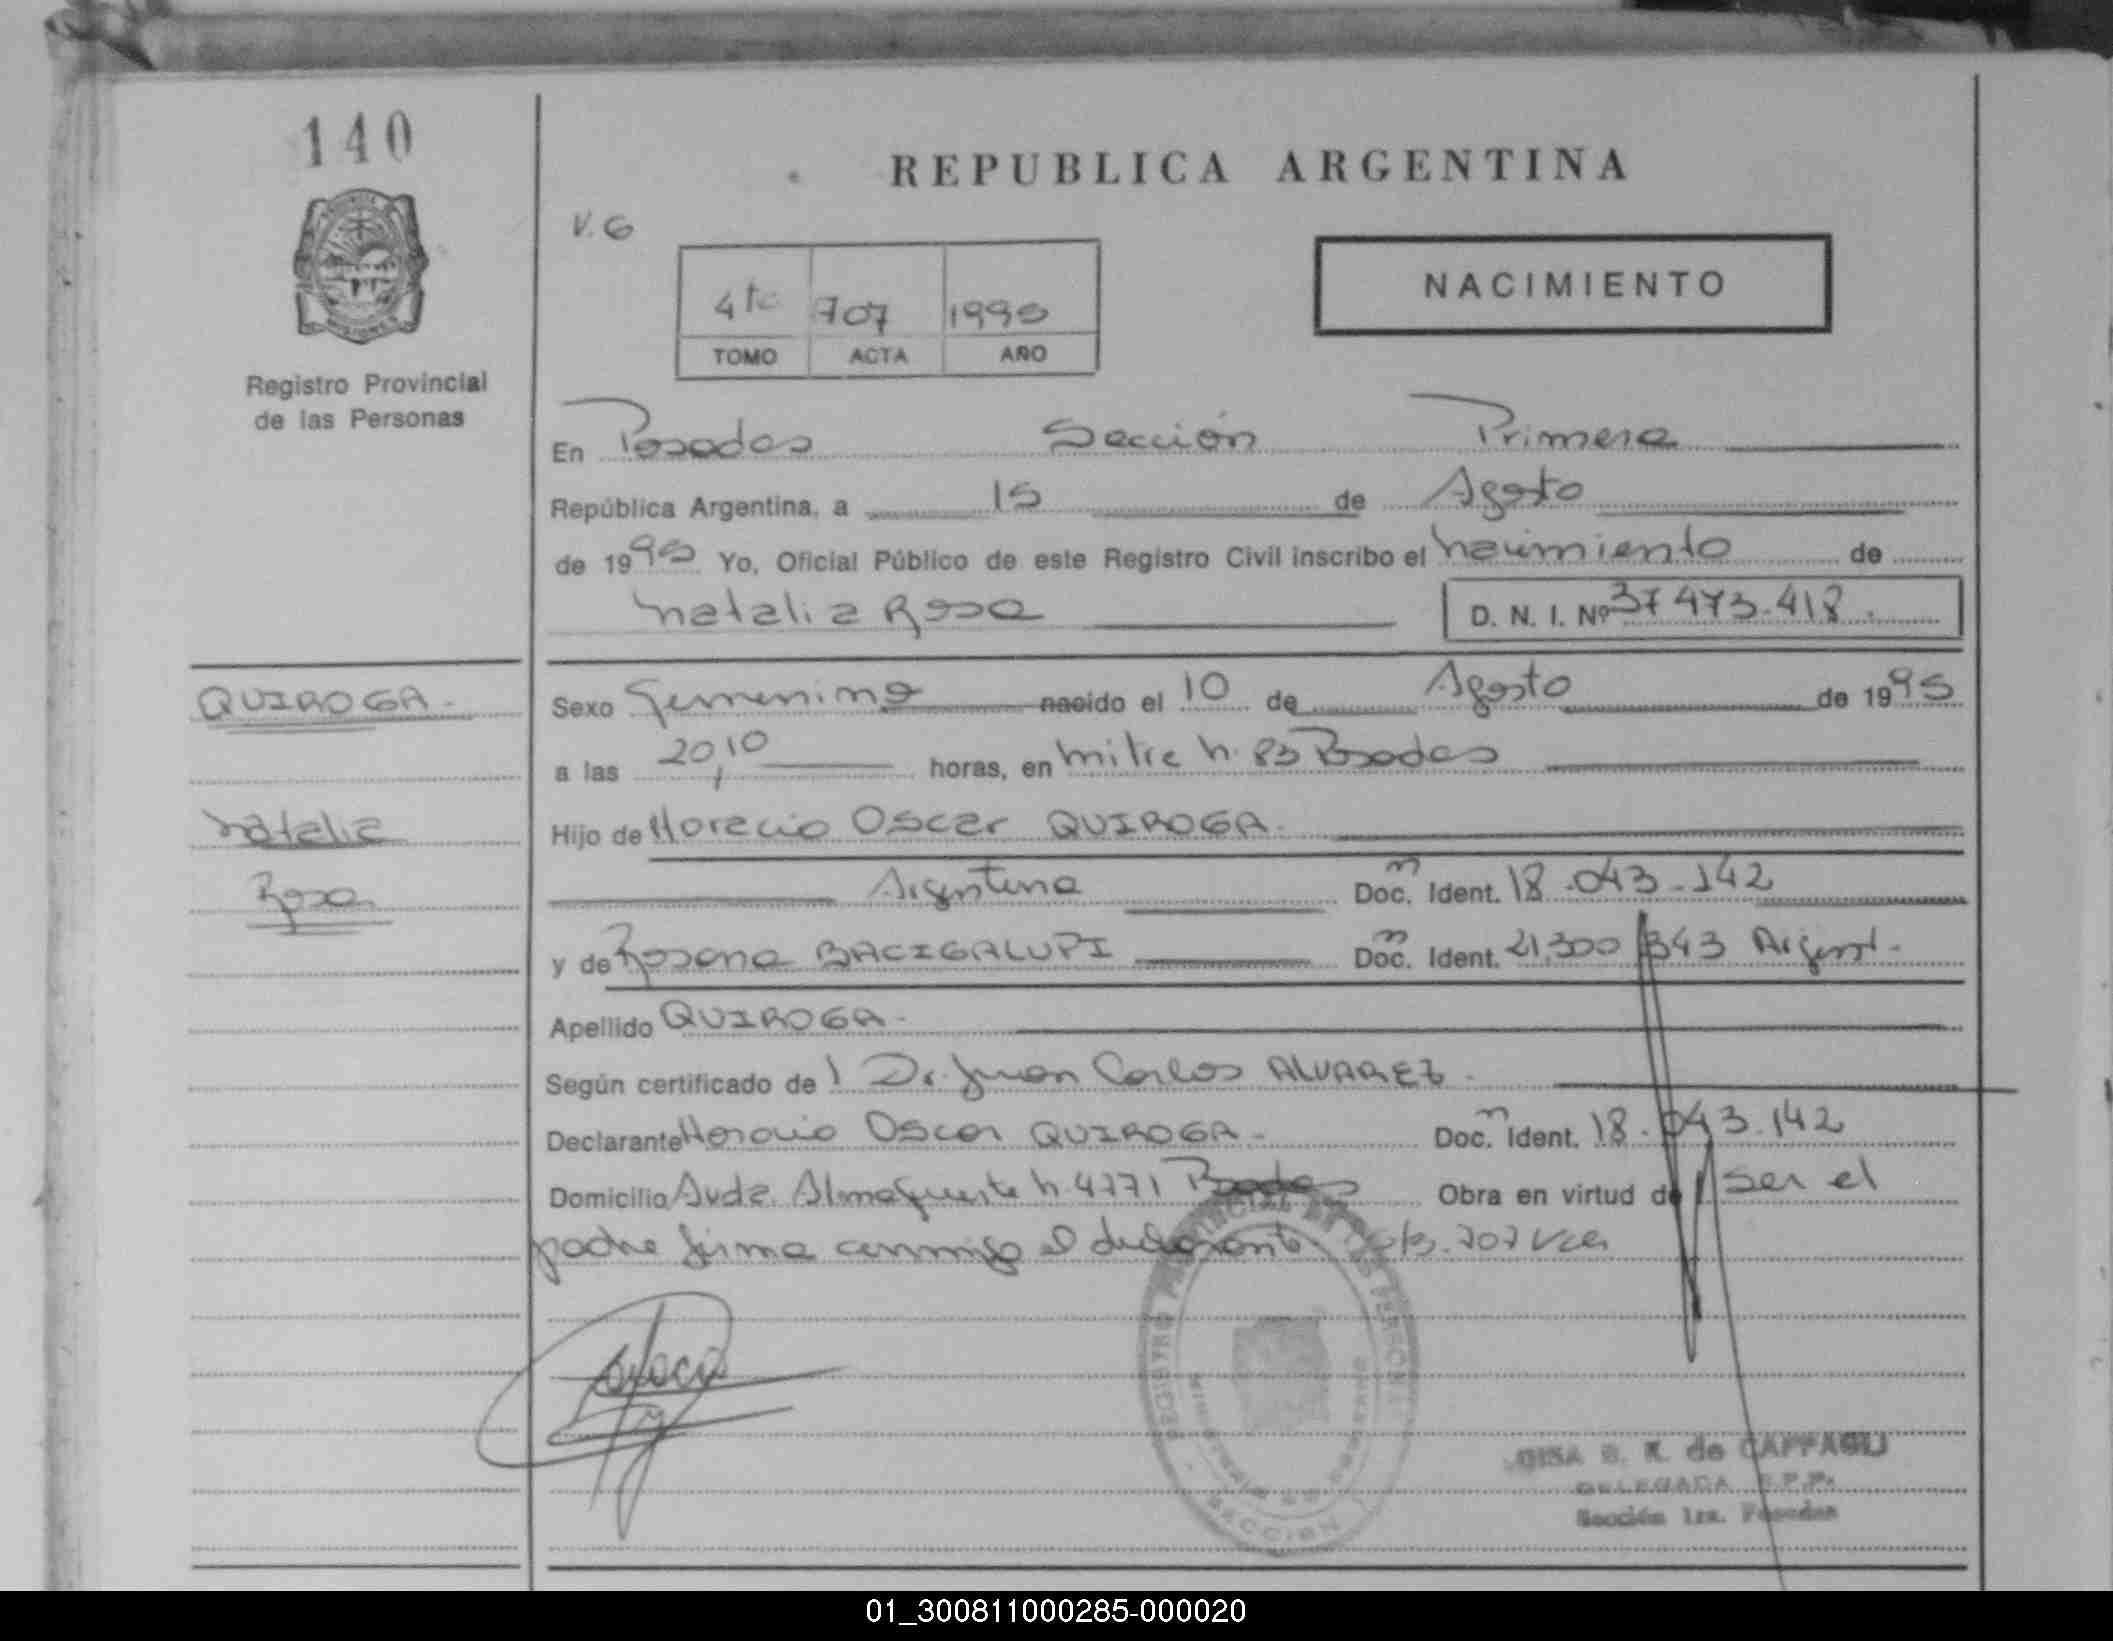 140
REPUBLICA ARGENTINA
V. G
NACIMIENTO
4to 707 1995
TOMO ACTA AÑO
Registro Provincial
de las Personas
En Posadas Sección Primera
República Argentina, a 15 de Agosto
de 1995 Yo, Oficial Público de este Registro Civil inscribo el nacimiento de
Natalia Rosa D. N. I. Nº 37473.418.
QUIROGA.
Sexo Femenino nacido el 10 de Agosto de 1995
a las 20,10 horas, en Mitre N. 83 Posadas
Natalia
Hijo de Horacio Oscar QUIROGA.
Rosa
Argentina Doc. Ident. 18.043.142
y de Rosana BACIGALUPI Doc. Ident. 21.300.343 Argent.
Apellido QUIROGA.
Según certificado de l Dr. Juan Carlos ALVAREZ.
Declarante Horacio Oscar QUIROGA. Doc. Ident. 18.043.142
Domicilio Avda. Almafuerte N. 4771 Posadas Obra en virtud de ser el
padre firma conmigo el declarante 707
REGISTRO PROVINCIAL DE LAS PERSONAS
MINISTERIO DE GOBIERNO
SECCION
B. K. de CAFFAGLI
DELEGADA R.P.P.
Sección 1ra. Posadas
01_300811000285-000020